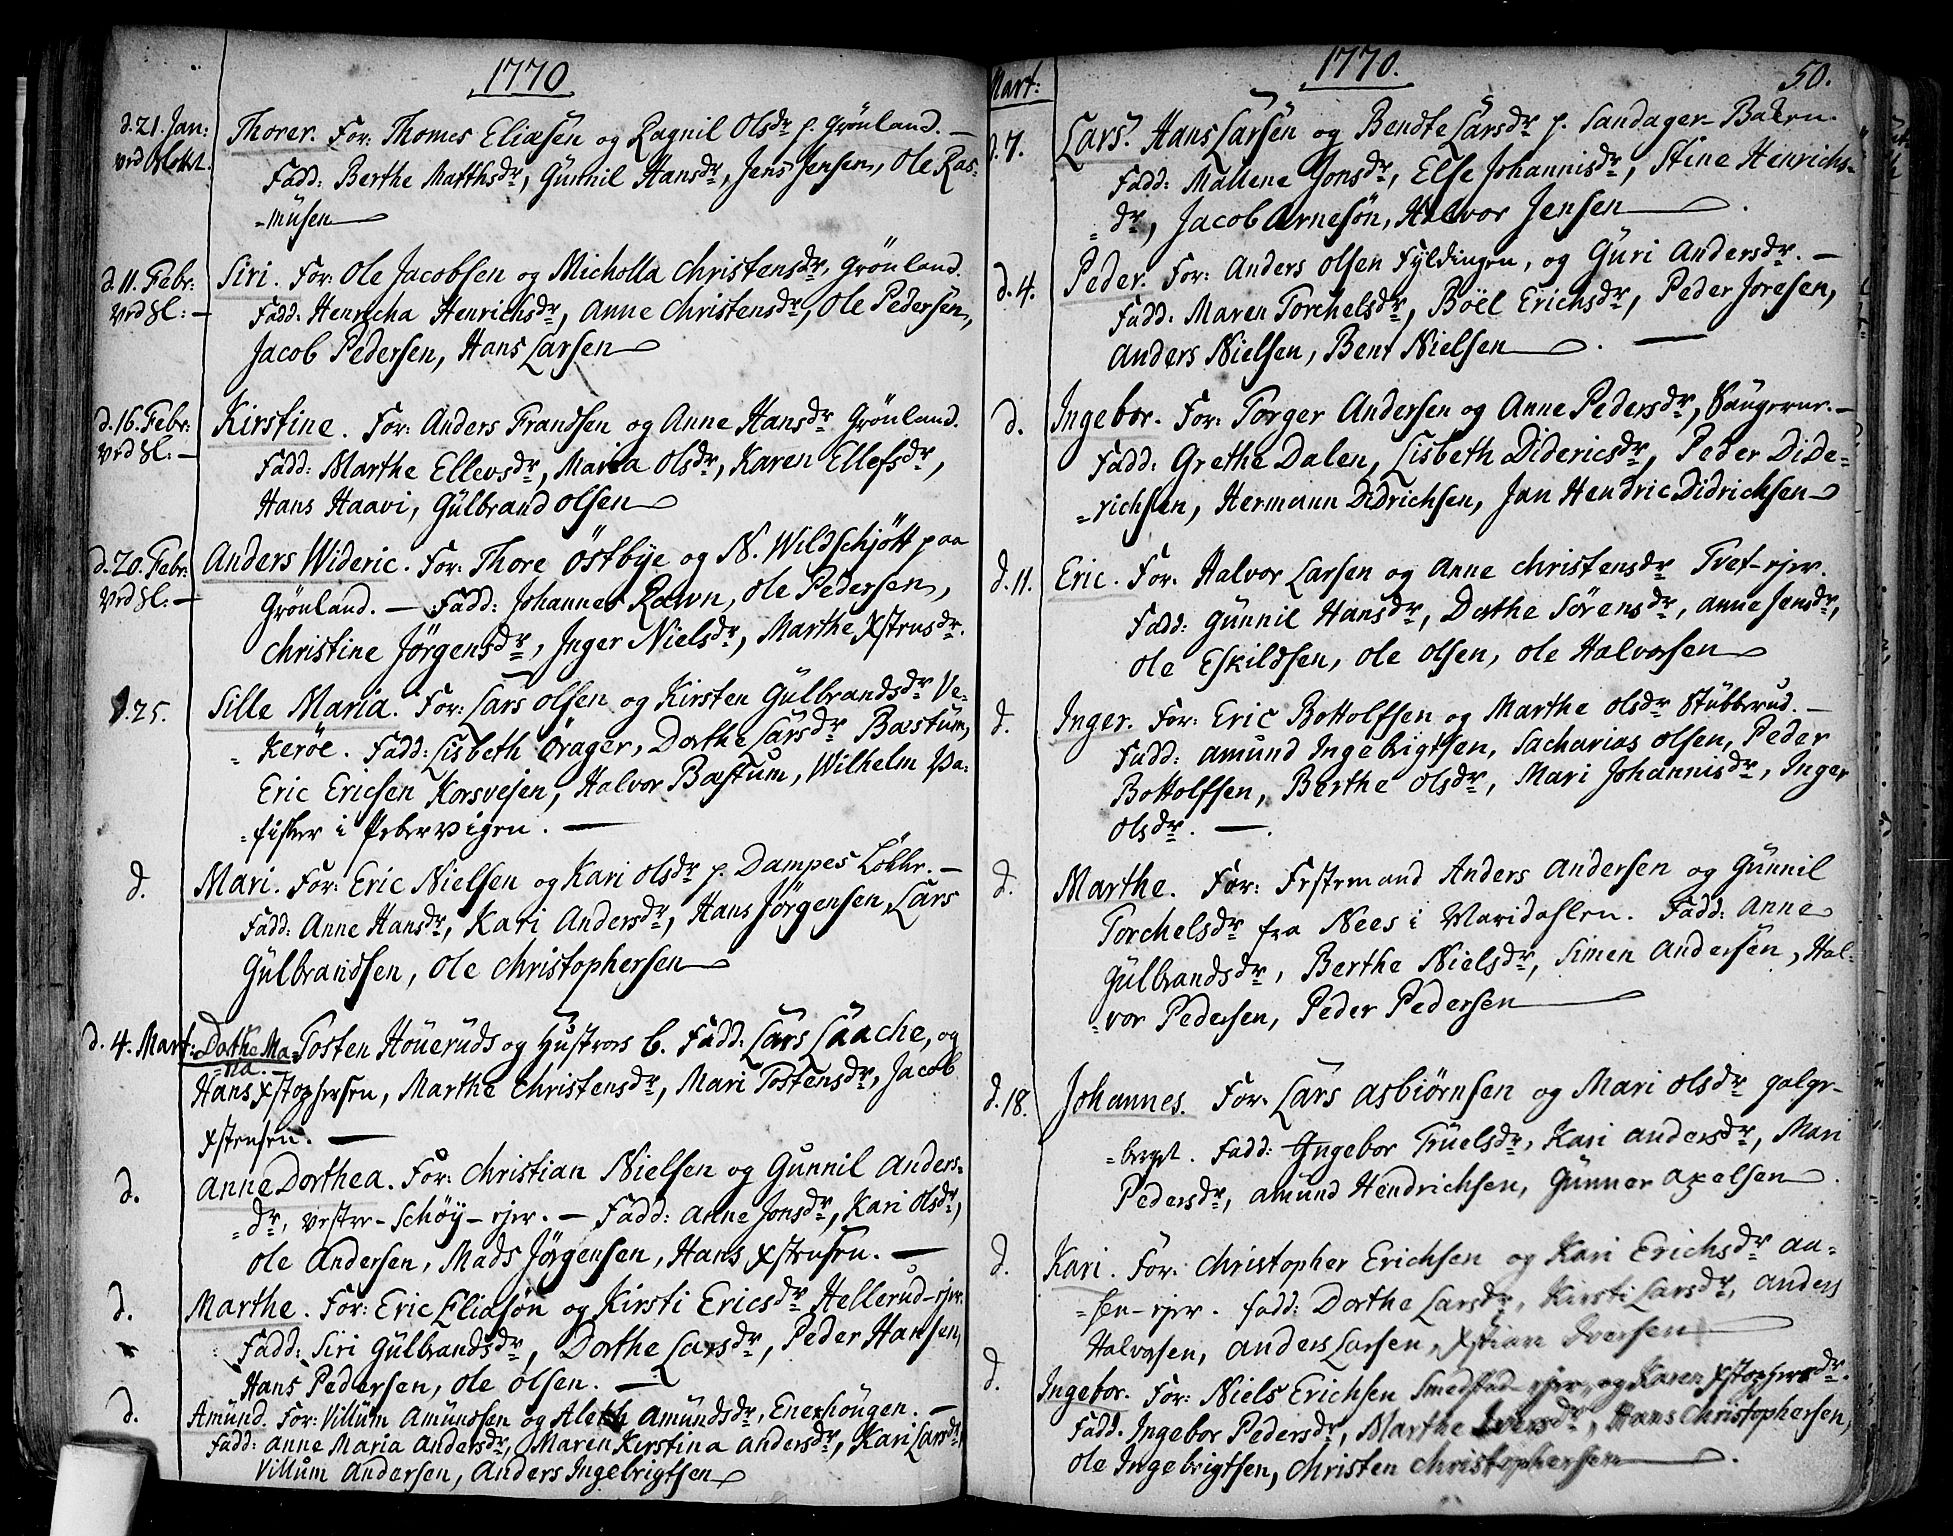 1770
d. 21. Jan: Thorer. For: Thomes Eliæsen og Ragnil Olsdr p. Grönland. —
ved Slottet. Fadd: Berthe Matthsdr, Gunnil Hansdr, Jens Jensen, Ole Ras=
=musen
d. 11. Febr: Siri. For: Ole Jacobsen og Micholla Christensdr, Grönland.
ved Sl: — Fadd: Henricha Henrichsdr, Anne Christensdr, Ole Pedersen,
Jacob Pedersen, Hans Larsen
d. 16. Febr: Kirstine. For: Anders Frandsen og Anne Hansdr Grönland.
ved Sl: — Fadd: Marthe Ellevsdr, Maria Olsdr, Karen Ellefsdr,
Hans Haavi, Gülbrand Olsen
d. 20. Febr: Anders Wideric. For: Thore Östbye og N. Wildschjött paa
ved Sl: — Grönland. — Fadd: Johannes Rawn, Ole Pedersen,
Christine Jörgensdr, Inger Nielsdr, Marthe Xstensdr.
d. 25. Sille Maria. For: Lars Olsen og Kirsten Gülbrandsdr Ve=
=keröe. Fadd: Lisbeth Örager, Dorthe Larsdr Bæstum,
Eric Ericsen Korsvejen, Halvor Bæstum, Wilhelm Pa=
=fisker i Pebervigen. —
d. Mari. For: Eric Nielsen og Kari Olsdr p. Dampes Lökke. —
Fadd: Anne Hansdr, Kari Andersdr, Hans Jörgensen, Lars
Gülbrandsen, Ole Christophersen
d. 4. Mart: Dorthe Ma= Tosten Höuerüds og Hustroes b. Fadd: Lars Laache, og
=ria. —
Hans Xstophersen, Marthe Christensdr, Mari Tostensdr, Jacob
Xstensen. —
d. Anne Dorthea. For: Christian Nielsen og Gunnil Anders=
=dr, Vestre-Schöy-ejer. — Fadd: Anne Jonsdr, Kari Olsdr,
Ole Andersen, Mads Jörgensen, Hans Xstensen. —
d. Marthe. For: Eric Eliasön og Kirsti Ericsdr Hellerud-ejer.
Fadd: Siri Gülbrandsdr, Dorthe Larsdr, Peder Hansen,
Hans Pedersen, Ole Olsen. —
d. Amünd. For: Villüm Amündsen og Aleth Amündsdr, Enerhöugen. —
Fadd: Anne Maria Andersdr, Maren Kirstina Andersdr, Kari Larsdr
Villüm Andersen, Anders Ingebrigtsen
1770. 50.
Mart:
d. 7. Lars. Hans Larsen og Bendte Larsdr p. Sandager-Baken.
Fadd: Mallene Jonsdr, Else Johannisdr, Stine Henrichs=
=dr, Jacob Arnesön, Halvor Jensen.
d. 4. Peder. For: Anders Olsen Fyldingen, og Guri Andersdr. —
Fadd: Maren Torchelsdr, Böel Erichsdr, Peder Joresen,
Anders Nielsen, Bent Nielsen. —
d. Ingebor. For: Torger Andersen og Anne Pedersdr, —
Fadd: Grethe Dalen, Lisbeth Didericsdr, Peder Dide=
=richsen, Hermann Didrichsen, Jan Hendric Didrichsen
d. 11. Eric. For: Halvor Larsen og Anne Christensdr Tvet-ejer.
Fadd: Günnil Hansdr, Dorthe Sörensdr, Anne Jensdr,
Ole Eskildsen, Ole Olsen, Ole Halvorsen
d. Inger. For: Eric Bottolfsen og Marthe Olsdr Stübberud. —
Fadd: Amund Ingebrigtsen, Sacharias Olsen, Peder
Bottolfsen, Berthe Olsdr, Mari Johannisdr, Inger
Olsdr. —
d. Marthe. For: Festemand Anders Andersen og Günnil
Torchelsdr fra Nees i Maridahlen. Fadd: Anne
Gülbrandsdr, Berthe Nielsdr, Simen Andersen, Hal=
=vor Pedersen, Peder Pedersen
d. 18. Johannes. For: Lars Asbiörnsen og Mari Olsdr galge=
=berget. Fadd: Ingebor Trüelsdr, Kari Andersdr, Mari
Pedersdr, Amund Hendrichsen, Günner Axelsen.
d. Kari. For: Christopher Erichsen og Kari Erichsdr Aa=
=sen-ejer. Fadd: Dorthe Larsdr, Kirsti Larsdr, Anders
Halvorsen, Anders Larsen, Xstian Iversen
d. Ingebor. For: Niels Erichsen Smedstad-ejer, og Karen Xstophersdr.
Fadd. Ingebor Pedersdr, Marthe Iversdr, Hans Christophersen,
Ole Ingebrigtsen, Christen Christophersen.